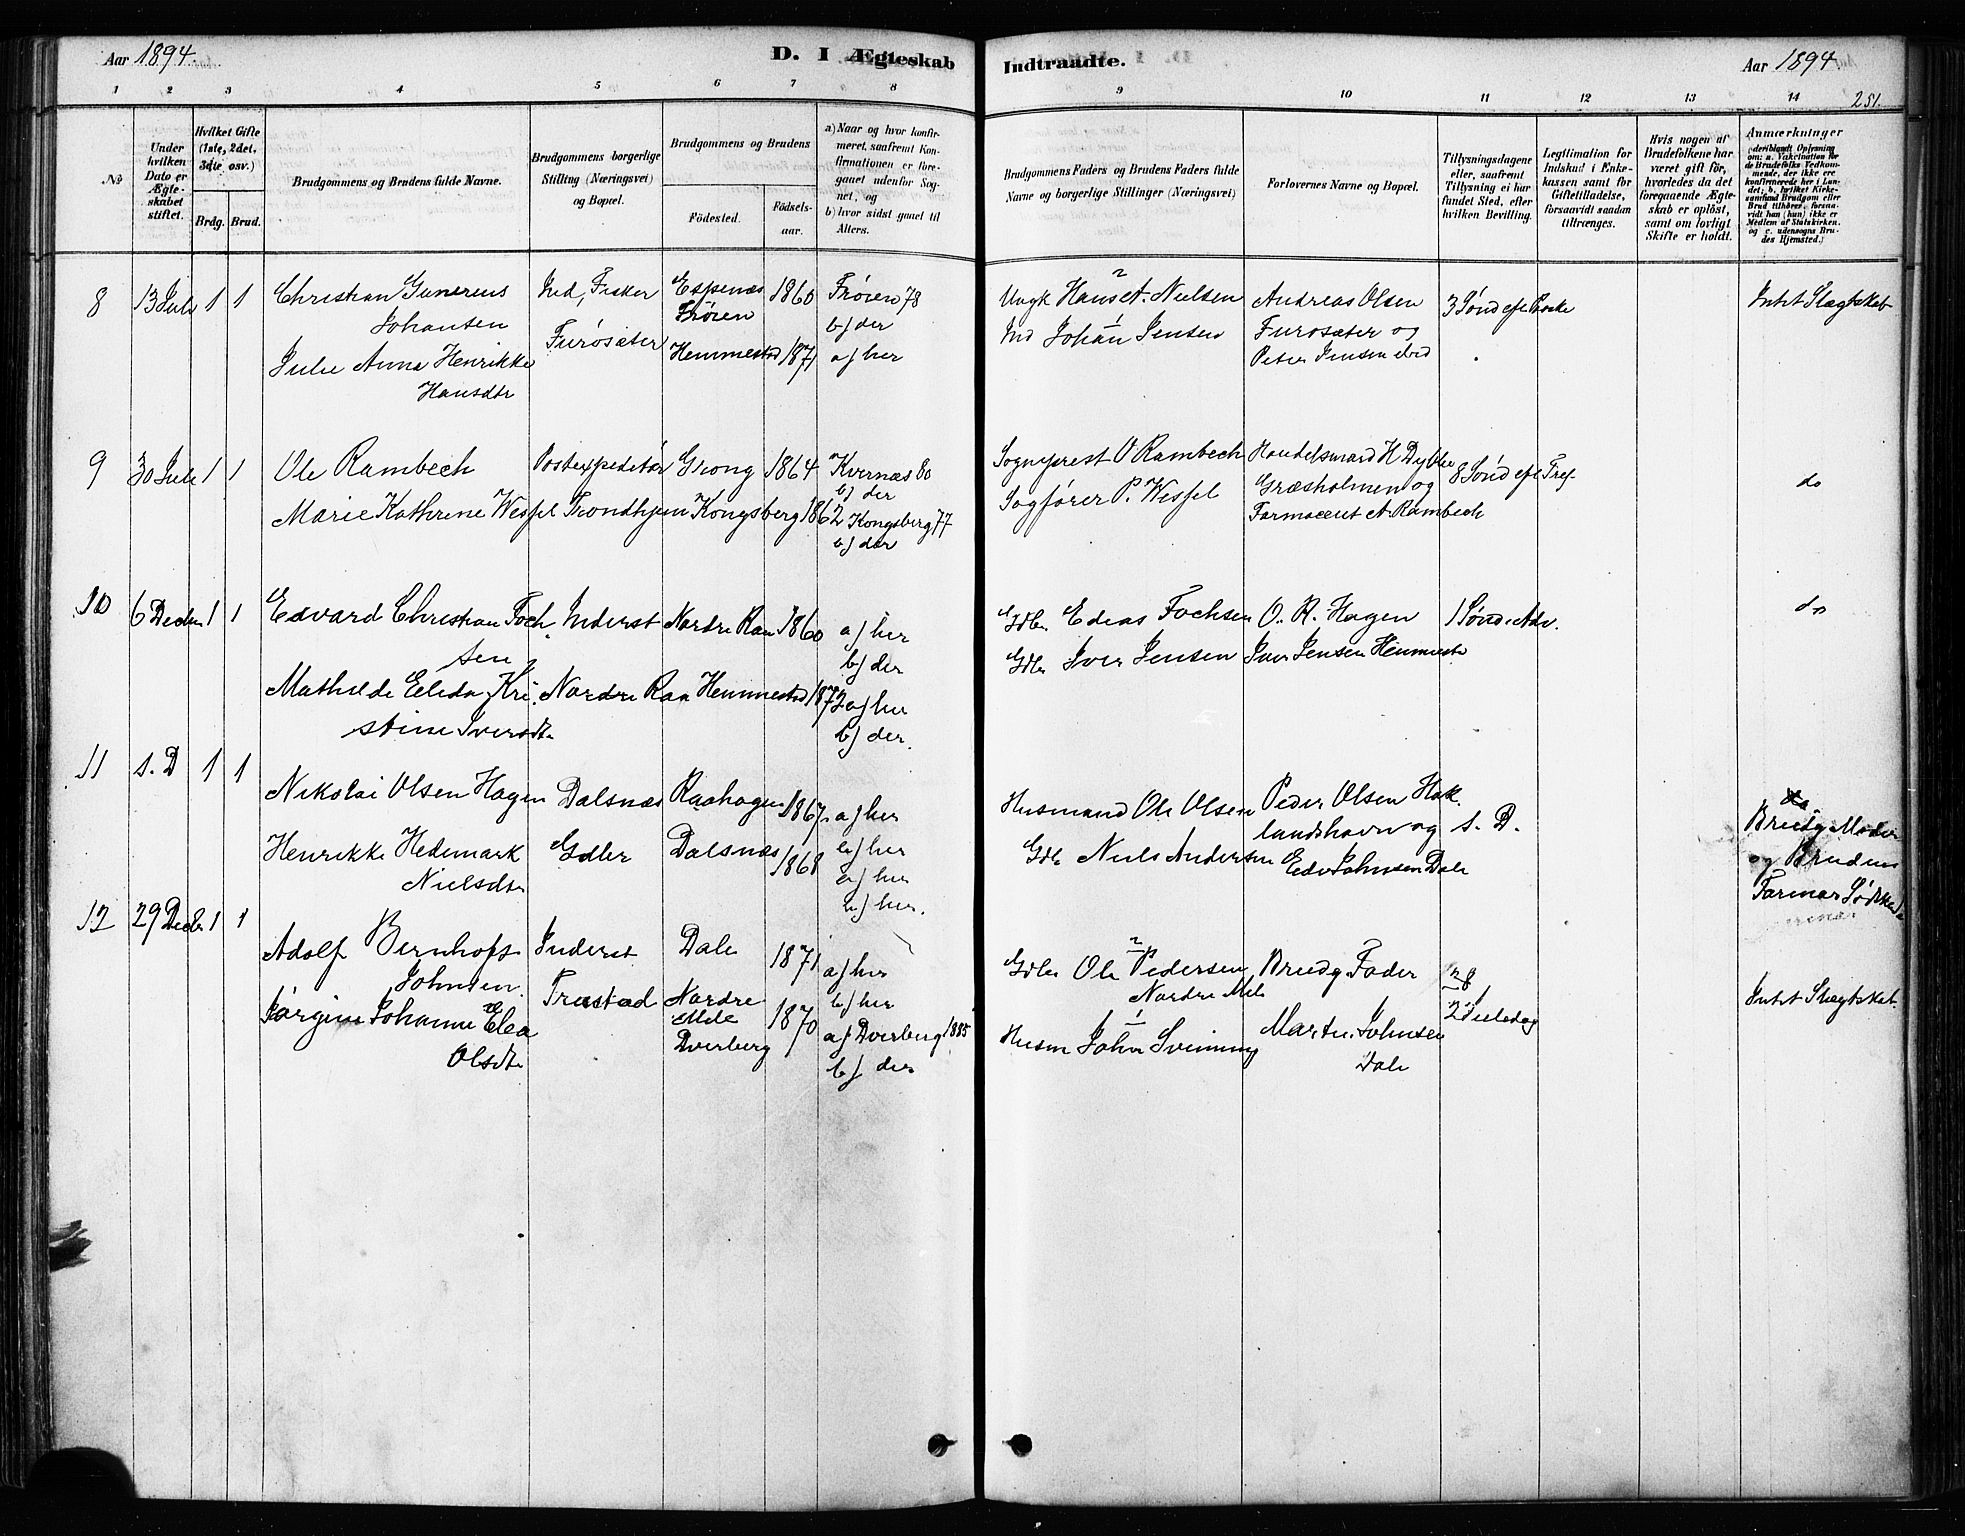 Aar 1894.
D. I Ægteskab
Indtraadte.
Aar 1894.
1 2 3 4 5 6 7 8
9 10 11 12 13 14
251.
№
Under hvilken Dato er Ægteskabet stiftet.
Hvilket Gifte (1ste, 2det, 3die osv.)
Brdg. Brud.
Brudgommens og Brudens fulde Navne.
Brudgommens borgerlige Stilling (Næringsvei) og Bopæl.
Brudgommens og Brudens
Födested.
Födselsaar.
a) Naar og hvor konfirmeret, saafremt Konfirmationen er foregaaet udenfor Sognet, og
b) hvor sidst gaaet til Alters.
Brudgommens Faders og Brudens Faders fulde Navne og borgerlige Stillinger (Næringsvei)
Forlovernes Navne og Bopæl.
Tillysningsdagene eller, saafremt Tillysning ei har fundet Sted, efter hvilken Bevilling.
Legitimation for Indskud i Enkekassen samt for Giftetilladelse, forsaavidt saadan tiltrænges.
Hvis nogen af Brudefolkene har været gift för, hvorledes da det foregaaende Ægteskab er oplöst, samt om lovligt Skifte er holdt.
Anmærkninger (deriblandt Oplysning om: a. Vakcination for de Brudefolks Vedkommende, der ikke ere konfirmerede her i Landet; b. hvilket Kirkesamfund Brudgom eller Brud tilhörer, forsaavidt han (hun) ikke er Medlem af Statskirken, og c. udensogns Brudes Hjemsted.)
8 13 Juli 1 1
Christian Gunerius
Johansen
Ind, Fisker
Furösæter
Espenæs
Fröien
1860
Fröien 78
b) der
Julie Anna Henrikke
Hansdtr
Hemmestad 1871 a) her
Ungk Hans A. Nielsen
Ind Johan Jensen
Andreas Olsen
Furosæter og
Peter Jensen ibid
3 Sönd efl Paaske
Intet Slægtskab
9 30 Juli 1 1
Ole Rambech
Postexpeditör
Grong 1864
Kvernæs 80
b) der
Marie Kathrine Wessel
Trondhjem
Kongsberg 1862
Kongsberg 77
b) der
Sogneprest O Rambech
Sagförer P. Wessel
Handelsmand H Dybke
Græsholmen og
Farmaceut A. Rambech
8 Sönd efl Tref.
do
10 6 Decbr 1 1
Edvard Christian Foch
sen
Inderst
Nordre Raa 1860
a) her
b) der
Mathilde Elida Kri
stine Iversdtr
Nordre Raa
Hemmestad 1872
a) her
b) der.
Gdbr. Edias Fochsen
Gdbr Iver Jensen
O. R. Hagen
Iver Jensen Hemmestd
1 Sönd i Adv.
do
11 s. D 1 1
Nikolai Olsen Hagen
Dalsnæs
Raahagen 1867
a) her
b) her
Henrikke Hedemark
Nielsdtr
Gdbr
Dalsnæs 1868
a) her
b) her.
Husmand Ole Olsen
Gdbr Niels Andersen
Peder Olsen Hok
landshavn og
Edv Johnsen Dale
s. D.
Brudg Moder
og Brudens
Farmor Södskende
12 29 Decbr 1 1
Adolf Bernhof
Johnsen.
Inderst
Trastad
Dale
1871
a) her
b) her
Jörgine Johanne Elea
Olsdtr
Nordre
Mele
Dverberg
1870
a) Dverberg 1885
b) der
Gdbr Ole Pedersen
Nordre Mele
Husm John Svinning
Brudg Fader
Martin Johnsen
Dale
2 Juledag
Intet Slægtskab.